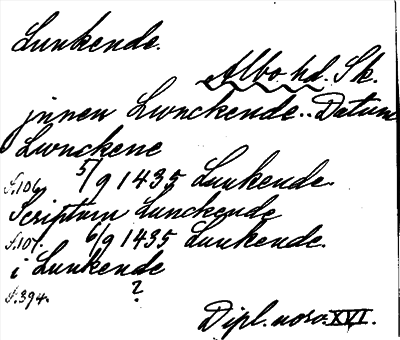 Lunkende.
Albo hd. Sk.
jnnen Lwnckende.. Datum
Lwnckene
S.106. 5/9 1435 Lunkende.
Scriptum lunckende
S.107. 6/9 1435 Lunkende.
i Lunkende
S.394. ?
Dipl. norv. XVI.